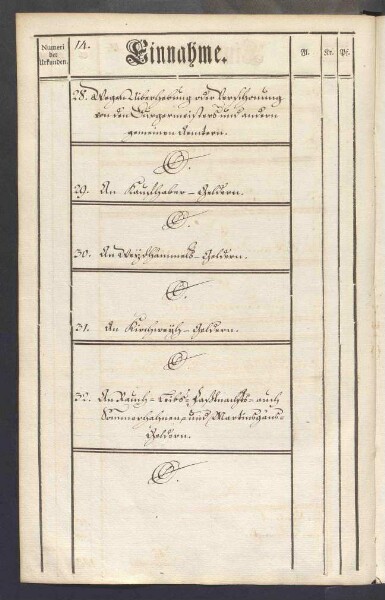 Numeri
der
Urkunden.
14.
Einnahme.
fl.
Kr.
Pf.
28. Wegen Überhebung oder Verschonung
von den Burgermeisters und andern
gemeinen Aemtern.
29. An Rauchhaber-Geldern.
30. An Weyhhammels-Geldern.
31. An Kirchweyh-Geldern.
32. An Rauch-Leibs-Faßnachts- auch
Sommerhahnen- und Martinsgäns-
Geldern.